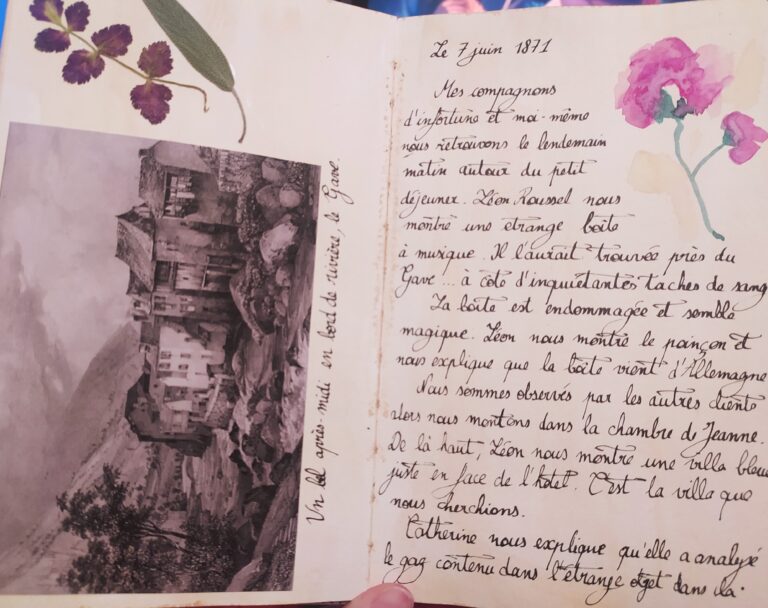 Un bel après-midi en bord de rivière, le Gave.
Le 7 juin 1871
Mes compagnons
d'infortune et moi-même
nous retrouvons le lendemain
matin autour du petit
déjeuner. Léon Roussel nous
montre une étrange boîte
à musique. Il l'aurait trouvée près du
Gave... à côté d'inquiétantes taches de sang
La boîte est endommagée et semble
magique. Léon nous montre le poinçon et
nous explique que la boîte vient d'Allemagne
Nous sommes observés par les autres clients
alors nous montons dans la chambre de Jeanne.
De là haut, Léon nous montre une villa bleue
juste en face de l'hotel. C'est la villa que
nous cherchions.
Catherine nous explique qu'elle a analysé
le gaz contenu dans l'étrange objet dans la